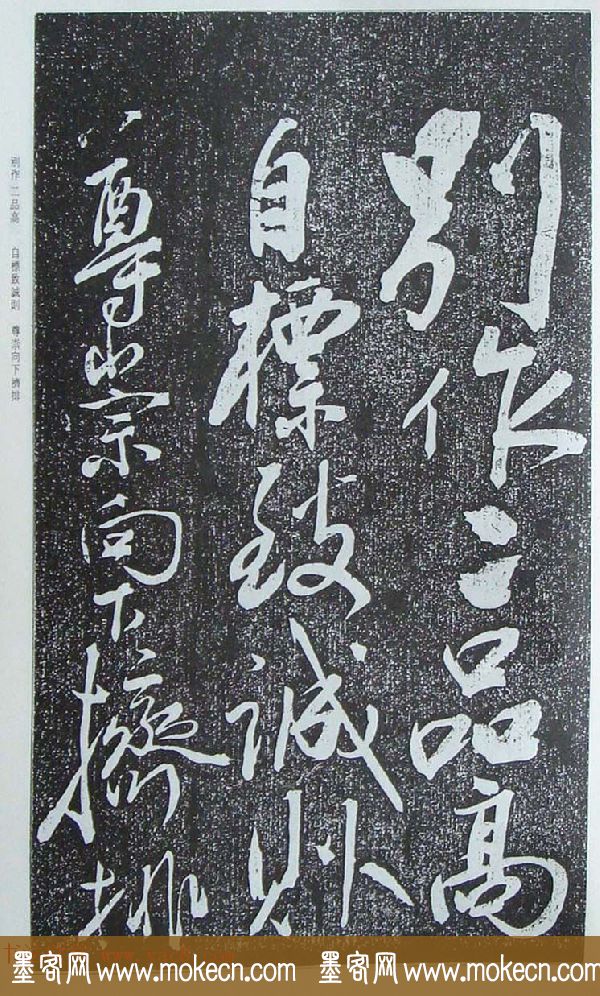 別作二品高
自標致誠則
尊崇向下擠排
別作二品高　自標致誠則　尊崇向下擠排
墨客网 www.mokecn.com 墨客网 www.mokecn.com